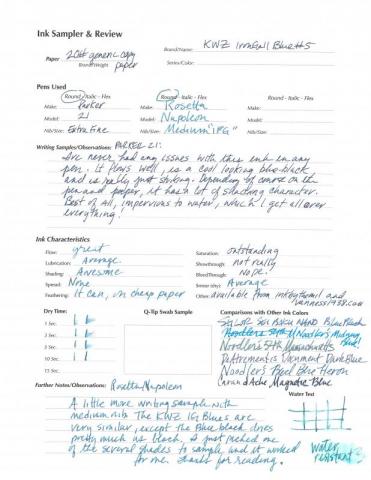 Ink Sampler & Review
Brand/Name: KWZ Iron Gall Blue #5
Paper 20# generic copy
Brand/Weight paper
Series/Color:
Pens Used
Round - Italic - Flex Round - Italic - Flex Round - Italic - Flex
Make: Parker Make: Rosetta Make:
Model: 21 Model: Napoleon Model:
Nib/Size: Extra Fine Nib/Size: Medium "IPG" Nib/Size:
Writing Samples/Observations: PARKER 21:
I've never had any issues with this ink in any
pen. It flows well, is a cool looking blue-black
and is really just striking. Depending of course on the
pen and paper, it has lot of shading character.
Best of all, impervious to water, which I get all over
everything!
Ink Characteristics
Flow: great Saturation: outstanding
Lubrication: Average Showthrough: not really
Shading: Awesome Bleedthrough: Nope!
Spread: None Smear (dry): Average
Feathering: It can, on cheap paper Other: available from inkbythemil and
vanness1938.com
Dry Time: Q-Tip Swab Sample Comparisons with Other Ink Colors
1 Sec Blue Black
3 Sec
5 Sec Noodler's 54th Massachusetts
10 Sec DeAtramentis Document Dark Blue
15 Sec Noodler's Bad Blue Heron
Caran d'Ache Magnetic Blue
Further Notes/Observations: Rosetta Napoleon
Water Test
A little more writing sample with
medium nib. The KWZ IG Blues are
very similar, except the Blue black dries
pretty much as black. I just picked one
of the several shades to sample and it worked
for me. Thanks for reading.
Water
resistant